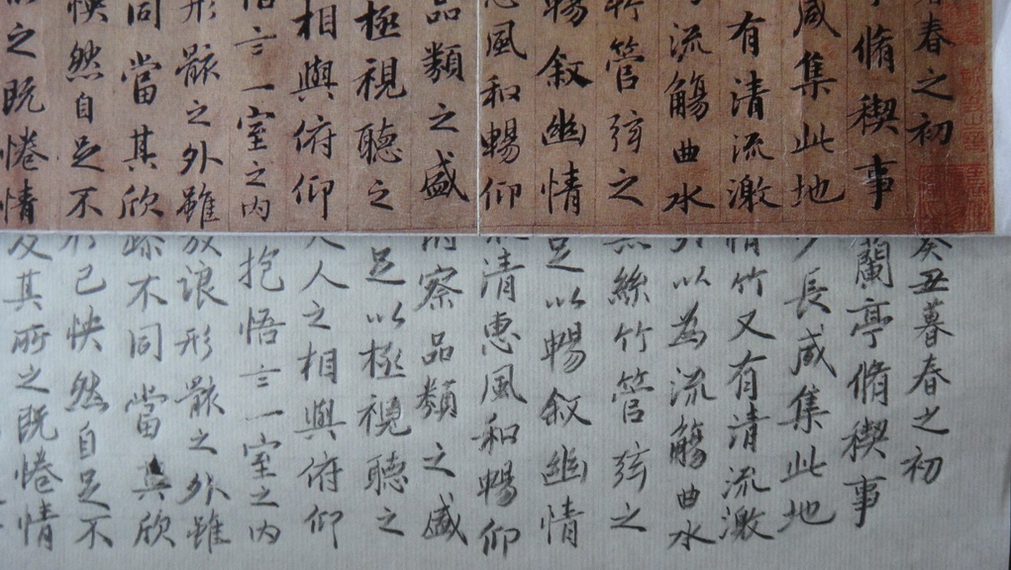 春之初
脩稧事
咸集此地
有清流激
流觴曲水
管弦之
暢叙幽情
風和暢仰
品類之盛
極視聽之
相與俯仰
悟言一室之内
形骸之外雖
同當其欣
快然自足不
之既惓情
癸丑暮春之初
蘭亭脩稧事
長咸集此地
脩竹又有清流激
以為流觴曲水
絲竹管弦之
足以暢叙幽情
清惠風和暢仰
察品類之盛
足以極視聽之
人之相與俯仰
抱悟言一室之内
放浪形骸之外雖
不同當其欣
己快然自足不
及其所之既惓情